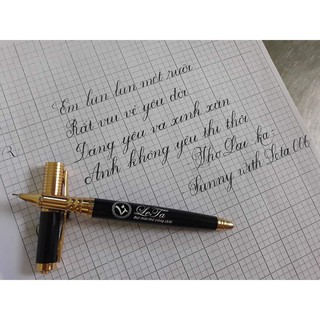 Em lun lun một rưỡi
Rất vui vẻ yêu đời
Dáng yêu và xinh xắn
Anh không yêu thì thôi
Thơ Lạc ka
Sunny with Leta 006
LeTa